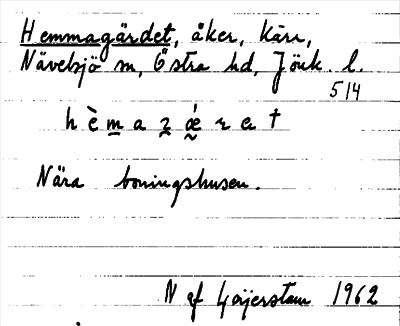 Hemmagärdet, åker, kärr,
Nävelsjö sn, Östra hd, Jönk. l.
514
Nära boningshusen.
N af 1962